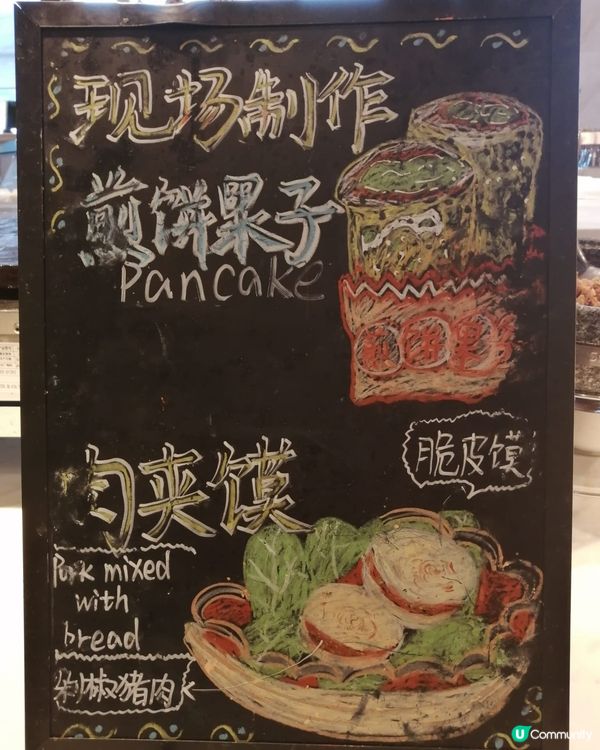 现场制作
煎饼果子
Pancake
煎饼果子
脆皮馍
肉夹馍
Pork mixed
with
bread
辣椒猪肉
U Community